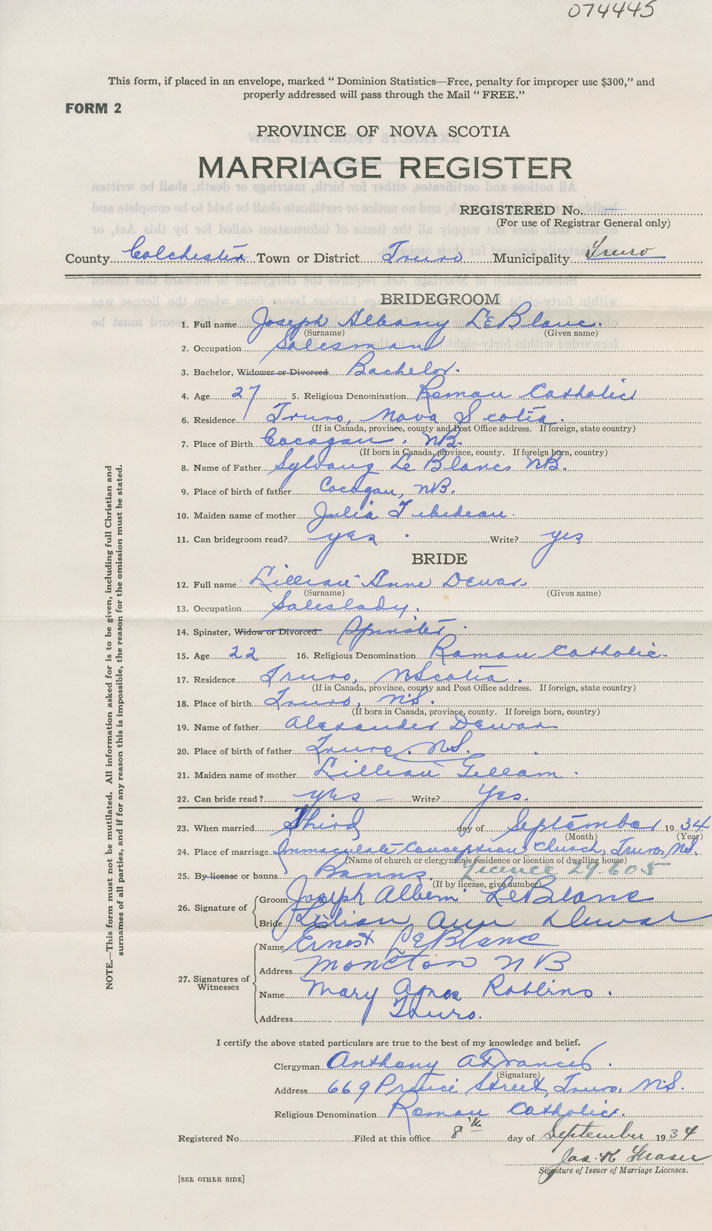 074445
This form, if placed in an envelope, marked “ Dominion Statistics—Free, penalty for improper use $300,” and
properly addressed will pass through the Mail “ FREE.”
FORM 2
PROVINCE OF NOVA SCOTIA
MARRIAGE REGISTER
REGISTERED No.
(For use of Registrar General only)
County Colchester Town or District Truro Municipality Truro
BRIDEGROOM
1. Full name Joseph Albany LeBlanc.
(Surname) (Given name)
2. Occupation Salesman
3. Bachelor, Widower or Divorced Bachelor.
4. Age 27 5. Religious Denomination Roman Catholic
6. Residence Truro, Nova Scotia.
(If in Canada, province, county and Post Office address. If foreign, state country)
7. Place of Birth Cocagan. NB.
(If born in Canada, province, county. If foreign born, country)
8. Name of Father Sylvang Le Blanc NB.
9. Place of birth of father Cocagan, NB.
10. Maiden name of mother Julia Tibedeau.
11. Can bridegroom read? yes. Write? yes
BRIDE
12. Full name Lillian Anne Dewar
(Surname) (Given name)
13. Occupation Saleslady.
14. Spinster, Widow or Divorced Spinster.
15. Age 22 16. Religious Denomination Roman Catholic.
17. Residence Truro, N Scotia.
(If in Canada, province, county and Post Office address. If foreign, state country)
18. Place of birth Truro, N.S.
(If born in Canada, province, county. If foreign born, country)
19. Name of father Alexander Dewar
20. Place of birth of father Truro. N.S.
21. Maiden name of mother Lillian Gillam.
22. Can bride read? yes Write? Yes.
23. When married Third day of September 1934
(Month) (Year)
24. Place of marriage Immaculate Conception Church, Truro, N.S.
(Name of church or clergyman's residence or location of dwelling house)
25. By license or banns Banns. Licence 29605
(If by license, give number)
26. Signature of
Groom Joseph Albeni LeBlanc
Bride Lilian Ann Dewar
27. Signatures of Witnesses
Name Ernest LeBlanc
Address Moncton NB
Name Mary Agnes Robbins.
Address Truro.
I certify the above stated particulars are true to the best of my knowledge and belief.
Clergyman Anthony
(Signature)
Address 669 Prince Street, Truro, N.S.
Religious Denomination Roman Catholic.
Registered No. Filed at this office 8th day of September 1934
Jas. K Fraser
Signature of Issuer of Marriage Licenses.
[SEE OTHER SIDE]
NOTE.—This form must not be mutilated. All information asked for is to be given, including full Christian and
surnames of all parties, and if for any reason this is impossible, the reason for the omission must be stated.